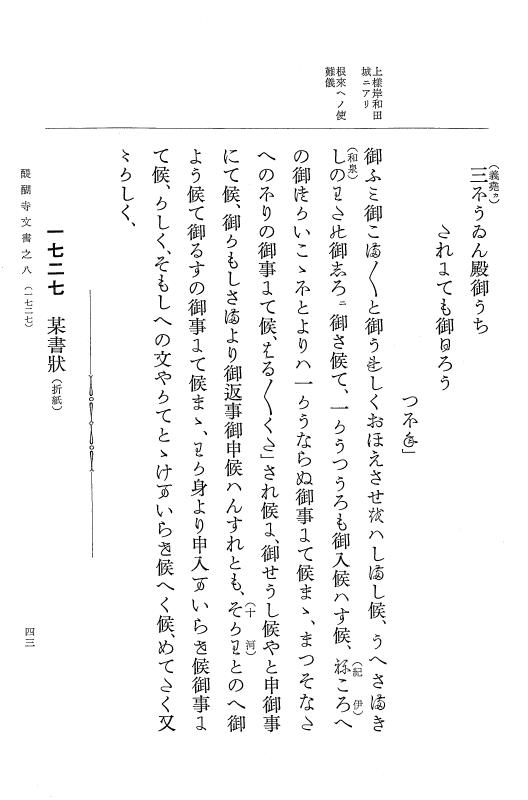 上樣岸和田
城ニアリ
根來ヘノ使
難儀
(義堯カ)
三ほうゐん殿御うち
たれにても御ひろう
つほね」
御ふミ御こま〳〵と御うれしくおほえさせをハしまし候、うへさまき
(和泉)
しのわたの御しろニ御さ候て、一かうつうろも御入候ハす候、ねころへ
(紀伊)
の御つかいこゝほとよりハ一かうならぬ御事にて候まゝ、まつそなた
へのほりの御事にて候、はる〳〵くた」され候に、御せうし候やと申御事
にて候、御かもしさまより御返事御申候ハんすれとも、そかわとのへ御
(十河)
よう候て御るすの御事にて候まゝ、わか身より申入まいらせ候御事に
て候、かしく、そもしへの文やかてとゝけまいらせ候へく候、めてたく又
〻かしく、
一七二七　某書狀(折紙)
醍醐寺文書之八(一七二七)
四三